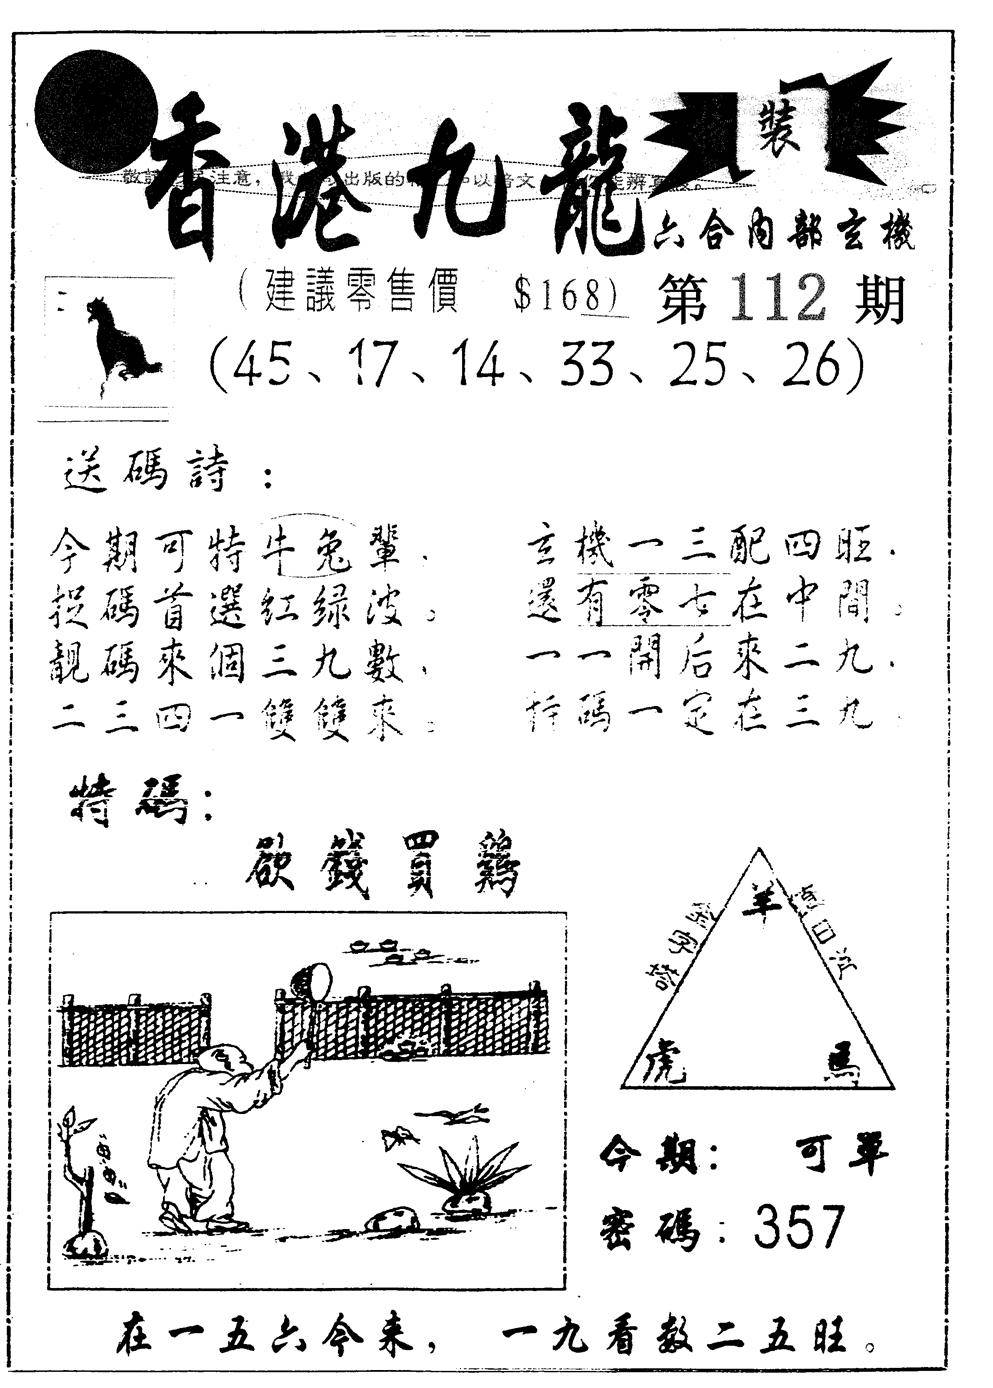 香港九龍
裝
注意，
出版的
六合內部玄機
（建議零售價 $168）
第112期
（45、17、14、33、25、26）
送碼詩：
今期可特牛兔輩．
捉碼首選紅绿波。
靚碼來個三九數，
二三四一雙雙來。
玄機一三配四旺．
還有零七在中間。
一一開后來二九．
特碼一定在三九．
特碼：
欲錢買鷄
金字塔
羊
虎
馬
今期： 可單
密碼：357
在一五六今来， 一九看数二五旺。